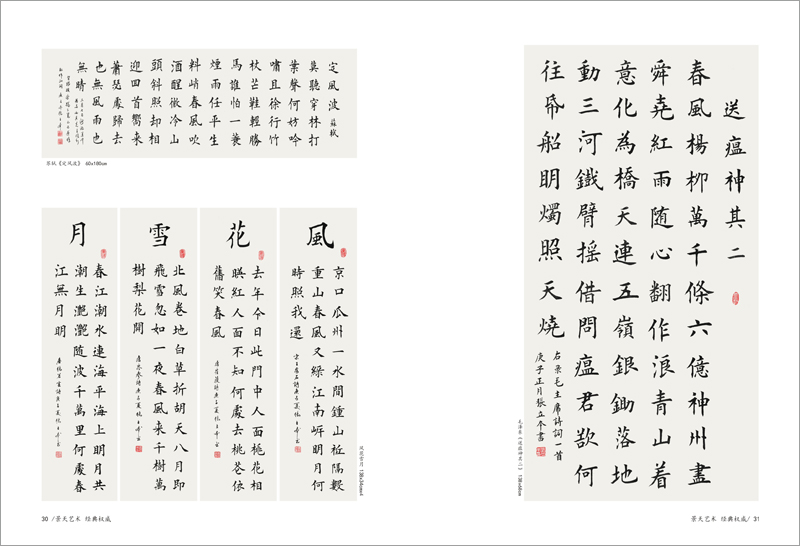 定風波 蘇軾
莫聽穿林打
葉聲何妨吟
嘯且徐行竹
杖芒鞋輕勝
馬誰怕一蓑
煙雨任平生
料峭春風吹
酒醒微冷山
頭斜照却相
迎回首嚮來
蕭瑟處歸去
也無風雨也
無晴
苏轼《定风波》 60x180cm
風
京口瓜州一水間鍾山衹隔數
重山春風又緑江南岸明月何
時照我還
花
去年今日此門中人面桃花相
暎紅人面不知何處去桃花依
舊笑春風
雪
北風卷地白草折胡天八月即
飛雪忽如一夜春風来千樹萬
樹梨花開
月
春江潮水連海平海上明月共
潮生灔灔随波千萬里何處春
江無月明
风花雪月
30 /景天艺术 经典权威
送瘟神其二
春風楊柳萬千條六億神州盡
舜堯紅雨随心翻作浪青山着
意化為橋天連五嶺銀鋤落地
動三河鐵臂摇借問瘟君欲何
往帋船明燭照天燒
右录毛主席詩詞一首
庚子正月張立夲書
景天艺术 经典权威/ 31